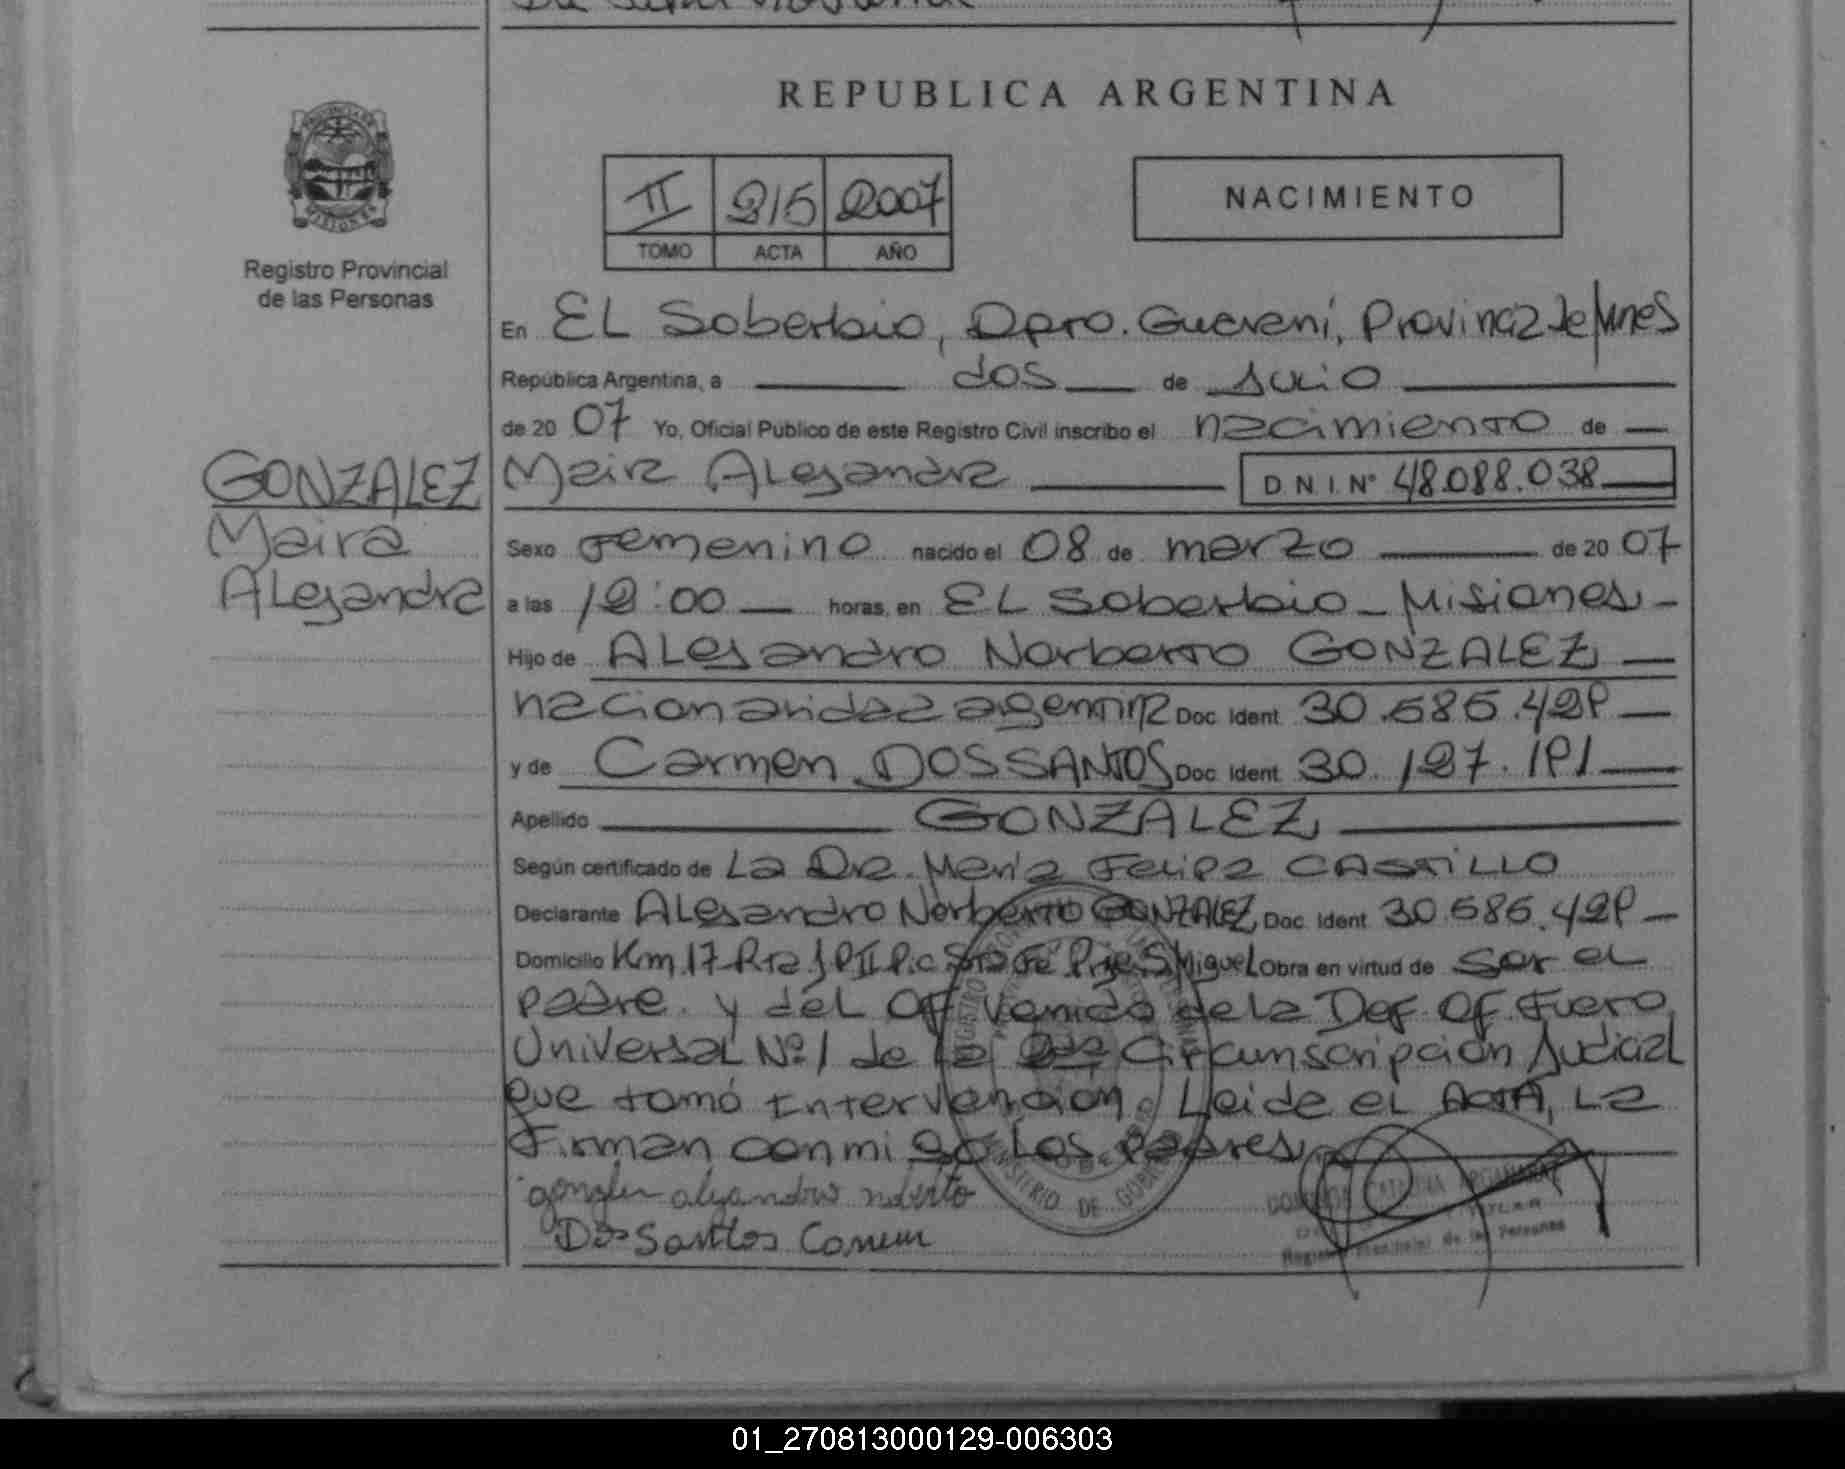 REPUBLICA ARGENTINA
II 215 2007
TOMO ACTA AÑO
NACIMIENTO
Registro Provincial
de las Personas
GONZALEZ
Maira
Alejandra
En EL Soberbio, Dpto. Guaraní, Provincia de Mnes
República Argentina, a dos de Julio
de 20 07 Yo, Oficial Publico de este Registro Civil inscribo el nacimiento de
Maira Alejandra D.N.I. N° 48.088.038
Sexo Femenino nacido el 08 de marzo de 20 07
a las 12:00 horas, en EL Soberbio - Misiones -
Hijo de Alejandro Norberto GONZALEZ
nacionalidad argentina Doc. Ident. 30.686.429
y de Carmen DOS SANTOS Doc. Ident. 30.127.191
Apellido GONZALEZ
Según certificado de La Dra. María Felipa CASTILLO
Declarante Alejandro Norberto GONZALEZ Doc. Ident. 30.686.429
Domicilio Km 17 Rta Sta Fe Pje S Miguel Obra en virtud de ser el
padre y del Of venido de la Def. Of. Fuero
Universal N° 1 de la 2da Circunscripción Judicial
que tomó Intervención. Leide el ACTA, La
Firman conmigo Los padres
gonzalez alejandro norberto
Dos Santos Carmen
MINISTERIO DE GOBIERNO
Registro Provincial de las Personas
01_270813000129-006303